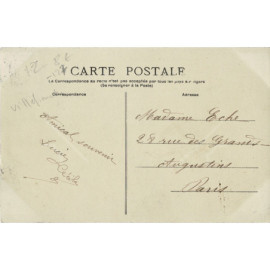 CARTE POSTALE
La Correspondance au recto n'est pas acceptée par tous les pays étrangers
(Se renseigner à la Poste)
Correspondance
Adresse
Amical souvenir
Madame Eche
28 rue des Grands-
Augustins
Paris